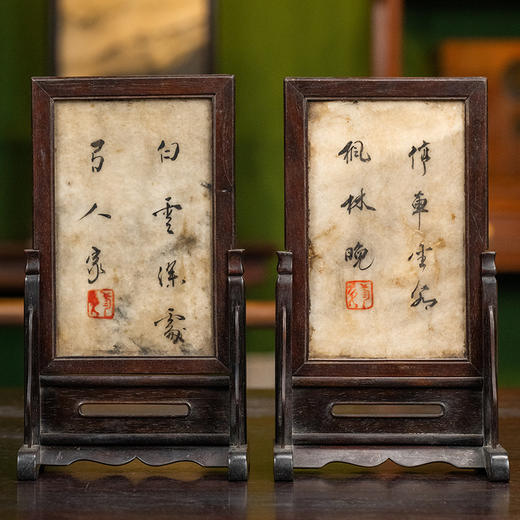 白雲深處
有人家
停車坐愛
楓林晚